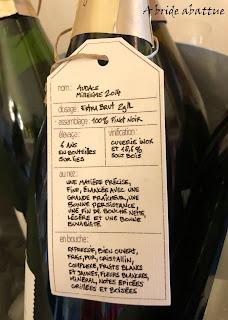 A bride abattue
nom: AUDACE
MILLÉSIME 2014
dosage: EXTRA BRUT 2g/L
assemblage: 100% PINOT NOIR
élevage:
6 ANS
EN BOUTEILLES
SUR LIES
vinification:
CUVERIE INOX
ET 18,6%
SOUS BOIS
au nez:
UNE MATIÈRE PRÉCISE,
FINE, ÉLANCÉE AVEC UNE
GRANDE FRAÎCHEUR, UNE
BONNE PERSISTANCE,
UNE FIN DE BOUCHE NETTE,
LÉGÈRE ET UNE BONNE
BUVABILITÉ
en bouche:
EXPRESSIF, BIEN OUVERT,
FRAIS, PUR, CRISTALLIN,
COMPLEXE, FRUITS BLANCS
ET JAUNES, FLEURS BLANCHES,
MINÉRAL, NOTES ÉPICÉES
GRILLÉES ET BOISÉES